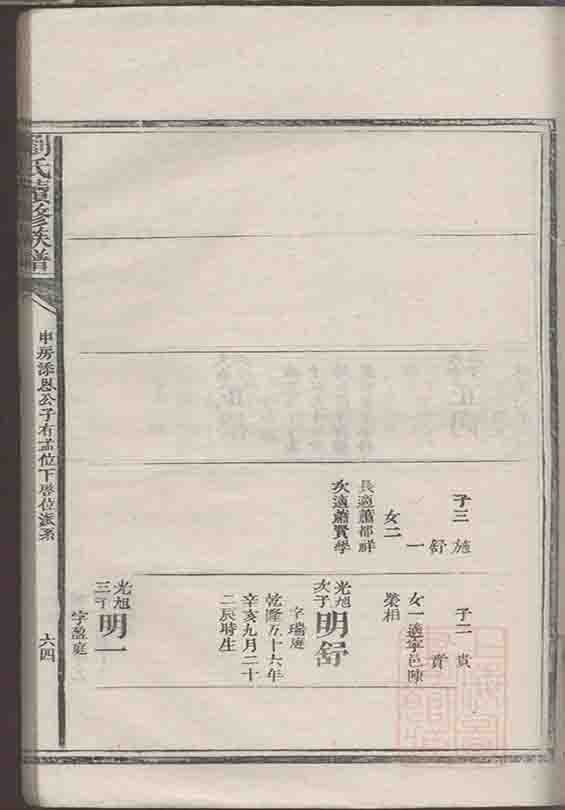 子三 施
舒
一
女二
長適蕭都祥
次適蕭賢學
子二 貴
賁
女一適寧邑陳
榮相
光旭
次子
明舒
字瑞庭
乾隆五十六年
辛亥九月二十
二辰時生
光旭
三子
明一
字盈庭
劉氏續修族譜
申房添恩公子有孟位下啓位派系
六四